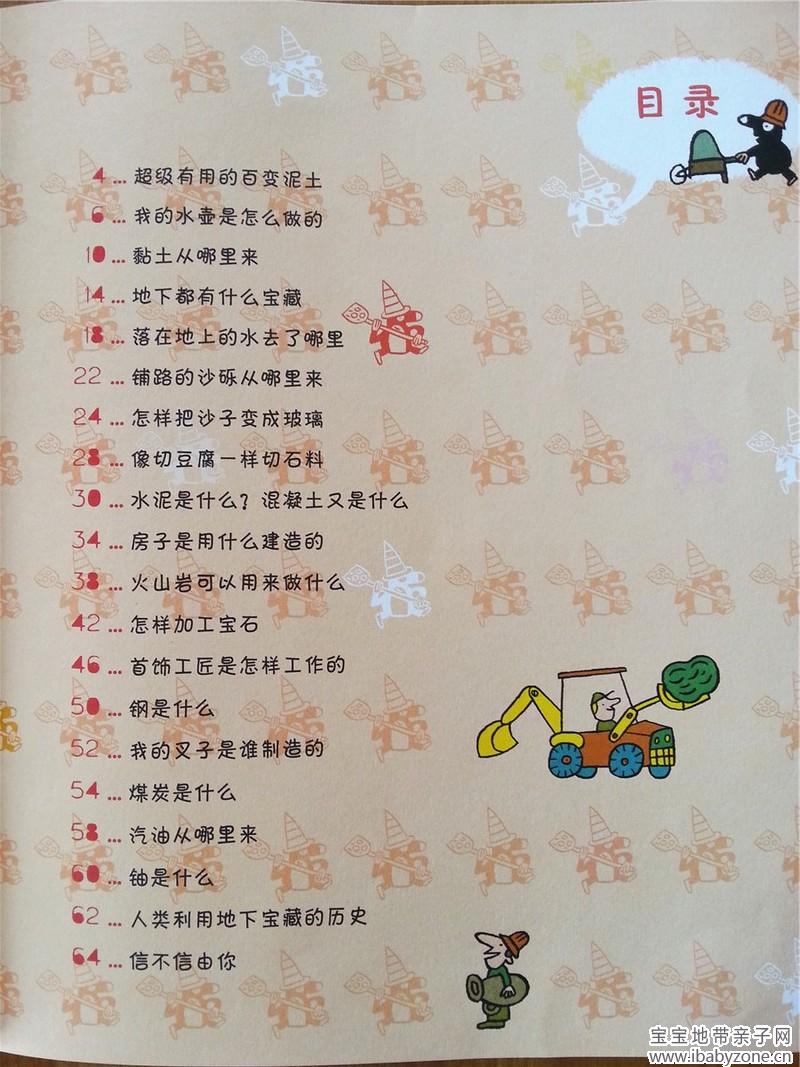 目录
4 ... 超级有用的百变泥土
6 ... 我的水壶是怎么做的
10 ... 黏土从哪里来
14 ... 地下都有什么宝藏
18 ... 落在地上的水去了哪里
22 ... 铺路的沙砾从哪里来
24 ... 怎样把沙子变成玻璃
28 ... 像切豆腐一样切石料
30 ... 水泥是什么？混凝土又是什么
34 ... 房子是用什么建造的
38 ... 火山岩可以用来做什么
42 ... 怎样加工宝石
46 ... 首饰工匠是怎样工作的
50 ... 钢是什么
52 ... 我的叉子是谁制造的
54 ... 煤炭是什么
58 ... 汽油从哪里来
60 ... 铀是什么
62 ... 人类利用地下宝藏的历史
64 ... 信不信由你
宝宝地带亲子网
www.ibabyzone.cn